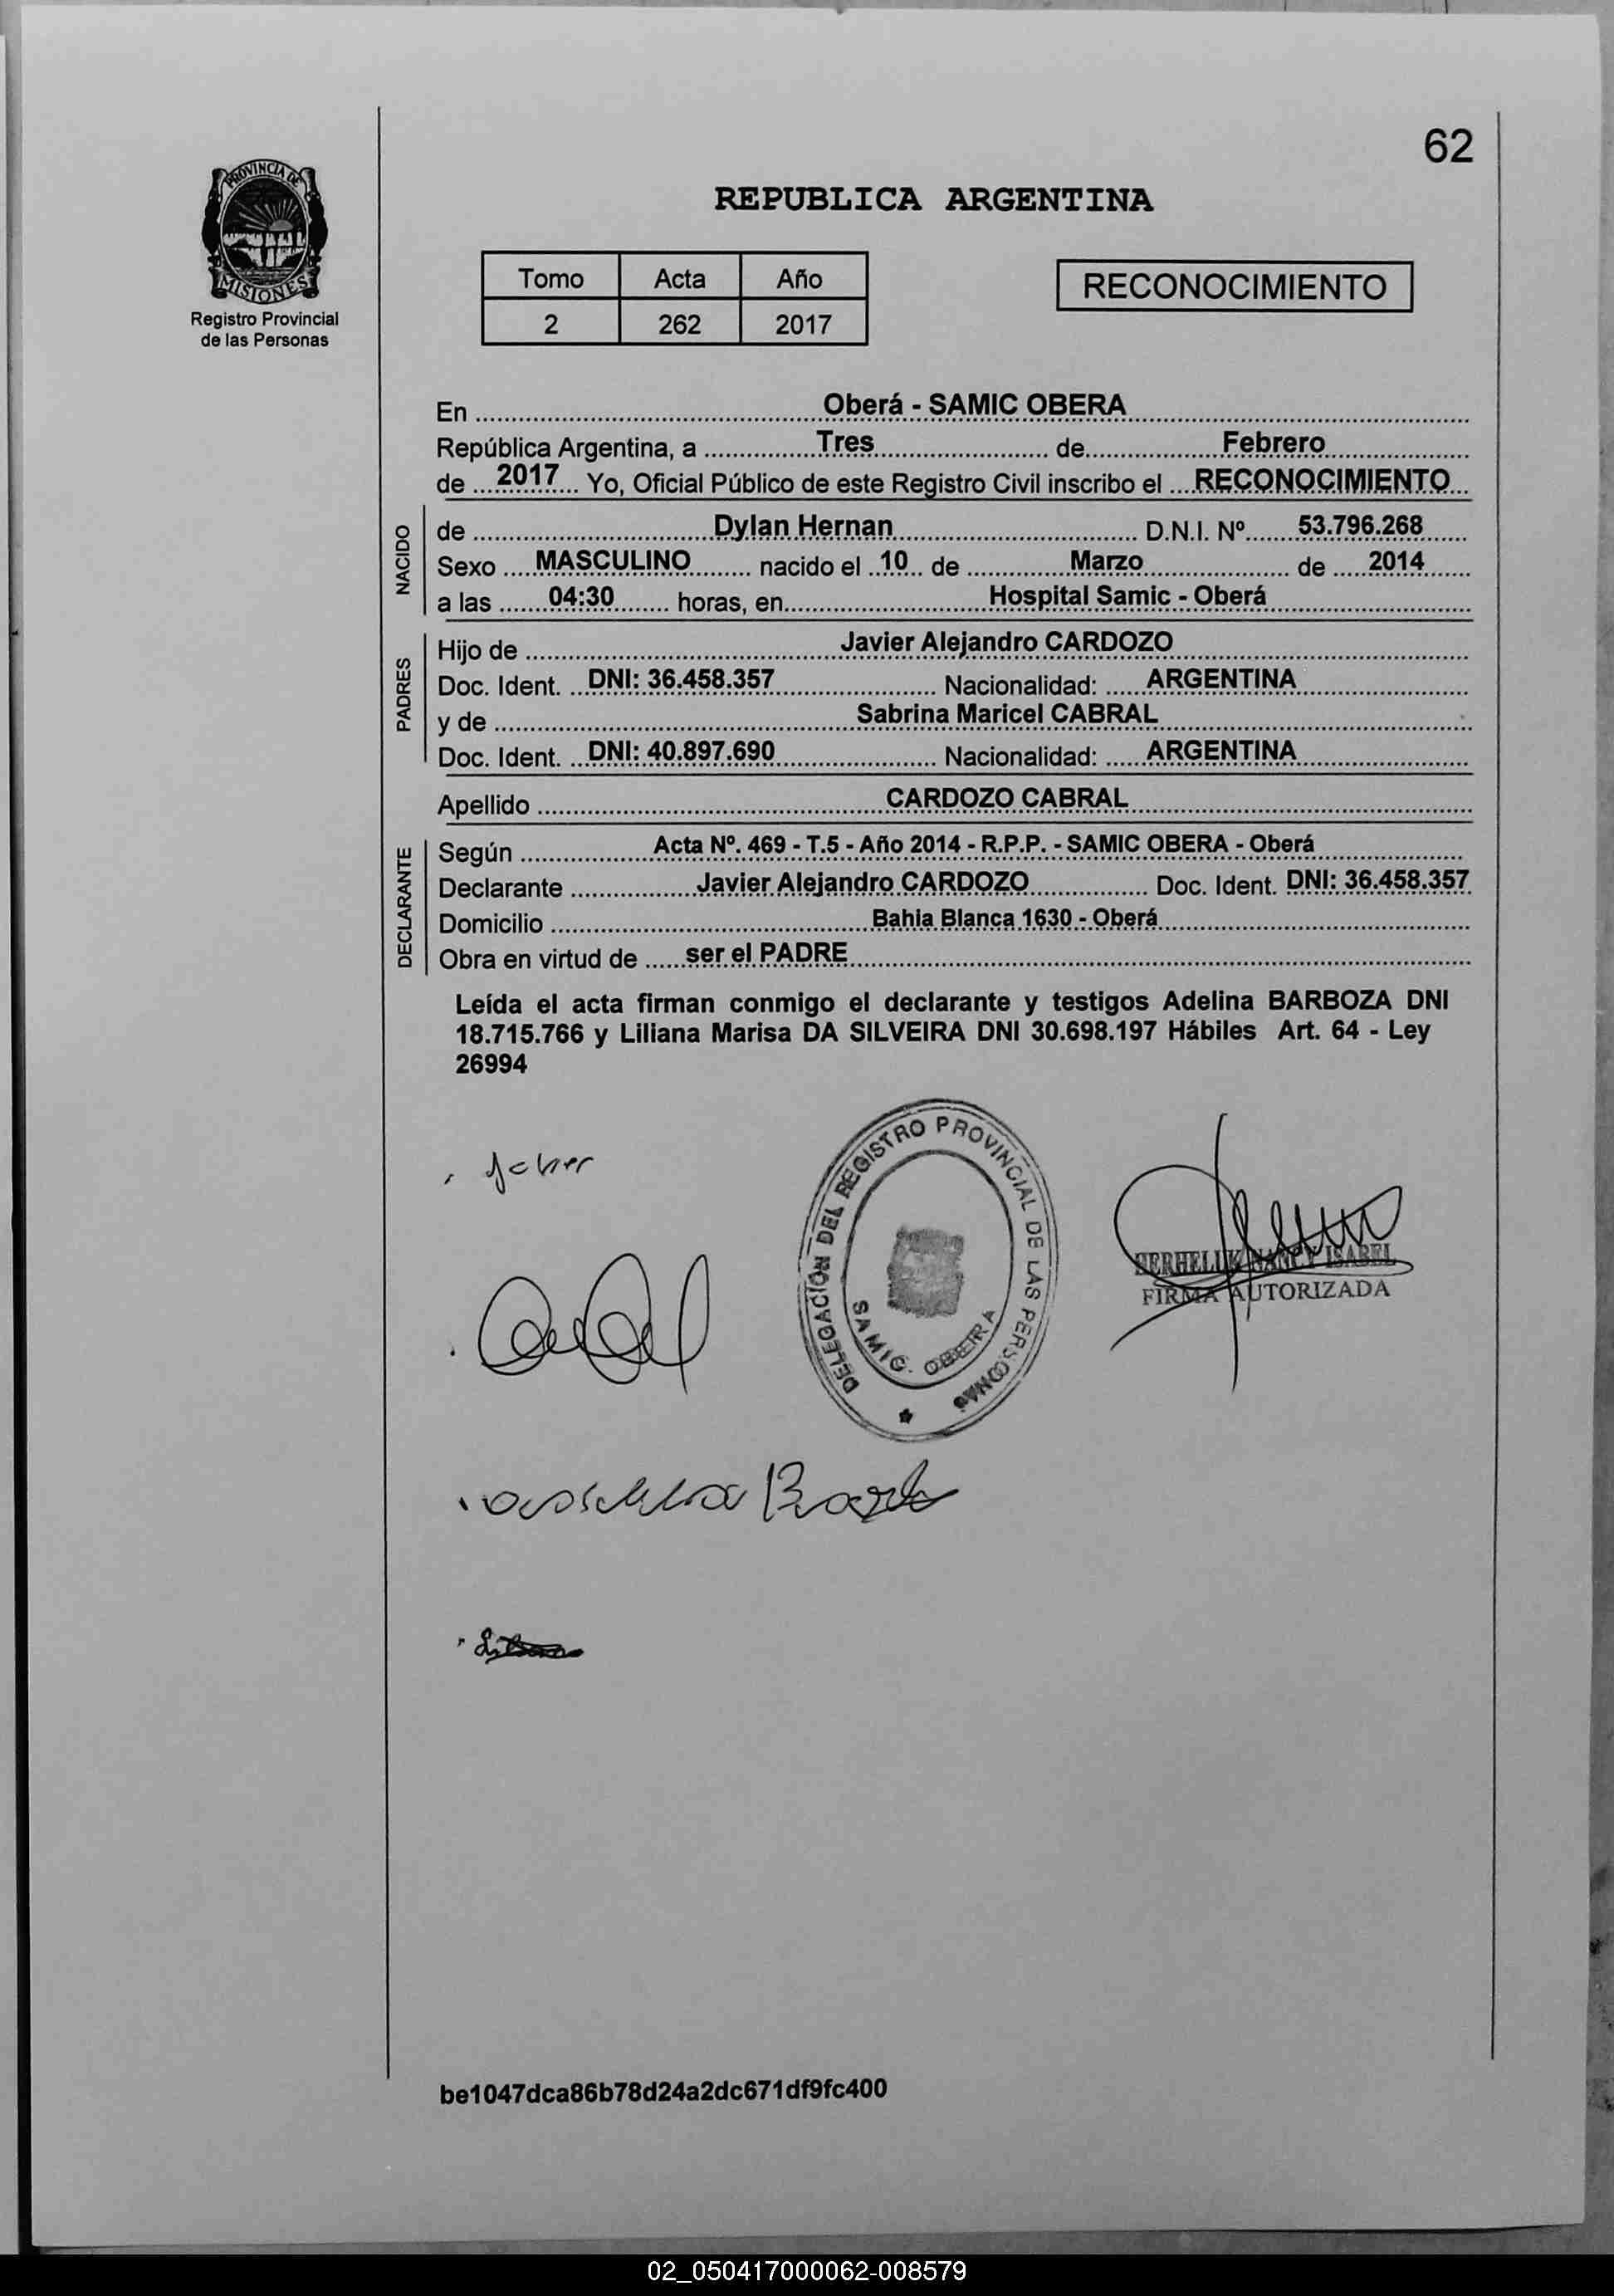 62
PROVINCIA DE
MISIONES
Registro Provincial
de las Personas
REPUBLICA ARGENTINA
Tomo Acta Año
2 262 2017
RECONOCIMIENTO
En Oberá - SAMIC OBERA
República Argentina, a Tres de Febrero
de 2017 Yo, Oficial Público de este Registro Civil inscribo el RECONOCIMIENTO
NACIDO
de Dylan Hernan D.N.I. Nº 53.796.268
Sexo MASCULINO nacido el 10 de Marzo de 2014
a las 04:30 horas, en Hospital Samic - Oberá
PADRES
Hijo de Javier Alejandro CARDOZO
Doc. Ident. DNI: 36.458.357 Nacionalidad: ARGENTINA
y de Sabrina Maricel CABRAL
Doc. Ident. DNI: 40.897.690 Nacionalidad: ARGENTINA
Apellido CARDOZO CABRAL
DECLARANTE
Según Acta Nº. 469 - T.5 - Año 2014 - R.P.P. - SAMIC OBERA - Oberá
Declarante Javier Alejandro CARDOZO Doc. Ident. DNI: 36.458.357
Domicilio Bahia Blanca 1630 - Oberá
Obra en virtud de ser el PADRE
Leída el acta firman conmigo el declarante y testigos Adelina BARBOZA DNI
18.715.766 y Liliana Marisa DA SILVEIRA DNI 30.698.197 Hábiles Art. 64 - Ley
26994
DELEGACIÓN DEL REGISTRO PROVINCIAL DE LAS PERSONAS
SAMIC. OBERA
NANCY ISABEL
FIRMA AUTORIZADA
be1047dca86b78d24a2dc671df9fc400
02_050417000062-008579